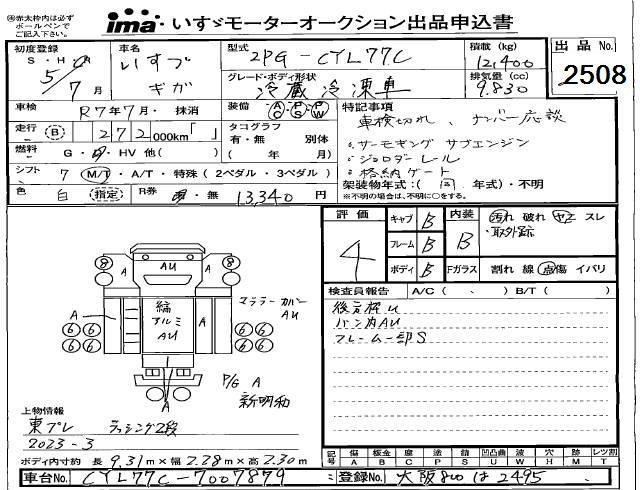 ㊟赤太枠内は必ず ボールペンで ご記入下さい。
ima いすゞモーターオークション出品申込書
初度登録 S・H・R 5/7月
車名 いすゞ ギガ
型式 2PG-CYL77C
積載(kg) 12,400
排気量(cc) 9.830
出品No. 2508
グレード・ボディ形状 冷蔵冷凍車
車検 R7年7月・抹消
装備 AC PS PW
特記事項
車検切れ、ナンバー応談
・サーモキング サブエンジン
・ジョロダーレール
・格納ゲート
走行 B 272000km「 」
タコグラフ 有・無 別体 ( 年 月)
燃料 G・D・HV 他( )
シフト 7 M/T・A/T・特殊(2ペダル・3ペダル)
架装物年式:(同 年式)・不明
※不明の場合は、不明に○をする。
色 白 指定
R券 有・無 13,340円
評価 4
キャブ B
フレーム B
ボディ B
内装 B
Fガラス
汚れ 破れ ヤニ スレ
・取外跡
割れ 線 点傷 イバリ
検査員報告 A/C( 、 ) B/T( )
後方枠U
バン内AU
フレーム一部S
8 A AU A 8
A 縞アルミAU A
6 6 6 6
6 6 6 6
マフラーカバー AU
A A
P/G A
新明和
上物情報
東プレ ラッシング2段
2023-3
ボディ内寸約 長9.31m×幅2.28m×高2.30m
記号 傷A 板金B 腐C 塗P 錆S 凹凸曲U 波W 穴H 跡M レツ割T
車台No. CYL77C-7007879
登録No. 大阪800は2495